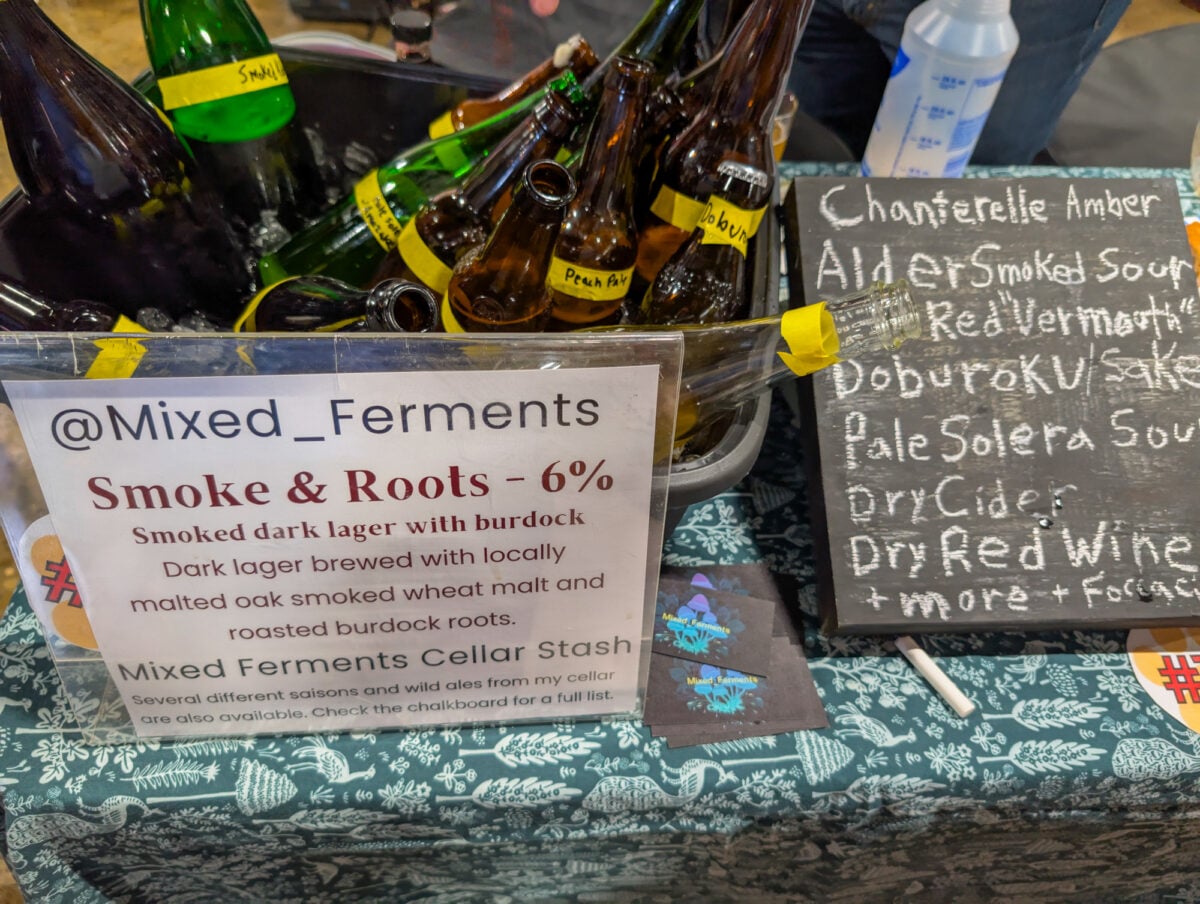 @Mixed_Ferments
Smoke & Roots - 6%
Smoked dark lager with burdock
Dark lager brewed with locally
malted oak smoked wheat malt and
roasted burdock roots.
Mixed Ferments Cellar Stash
Several different saisons and wild ales from my cellar
are also available. Check the chalkboard for a full list.
Chanterelle Amber
Alder Smoked Sour
Red "Vermouth"
Doburoku/Sake
Pale Solera Sou
Dry Cider
Dry Red Wine
+ more +
Peach Pale
Dobur
Mixed_Ferments
Mixed_Ferments
#
#